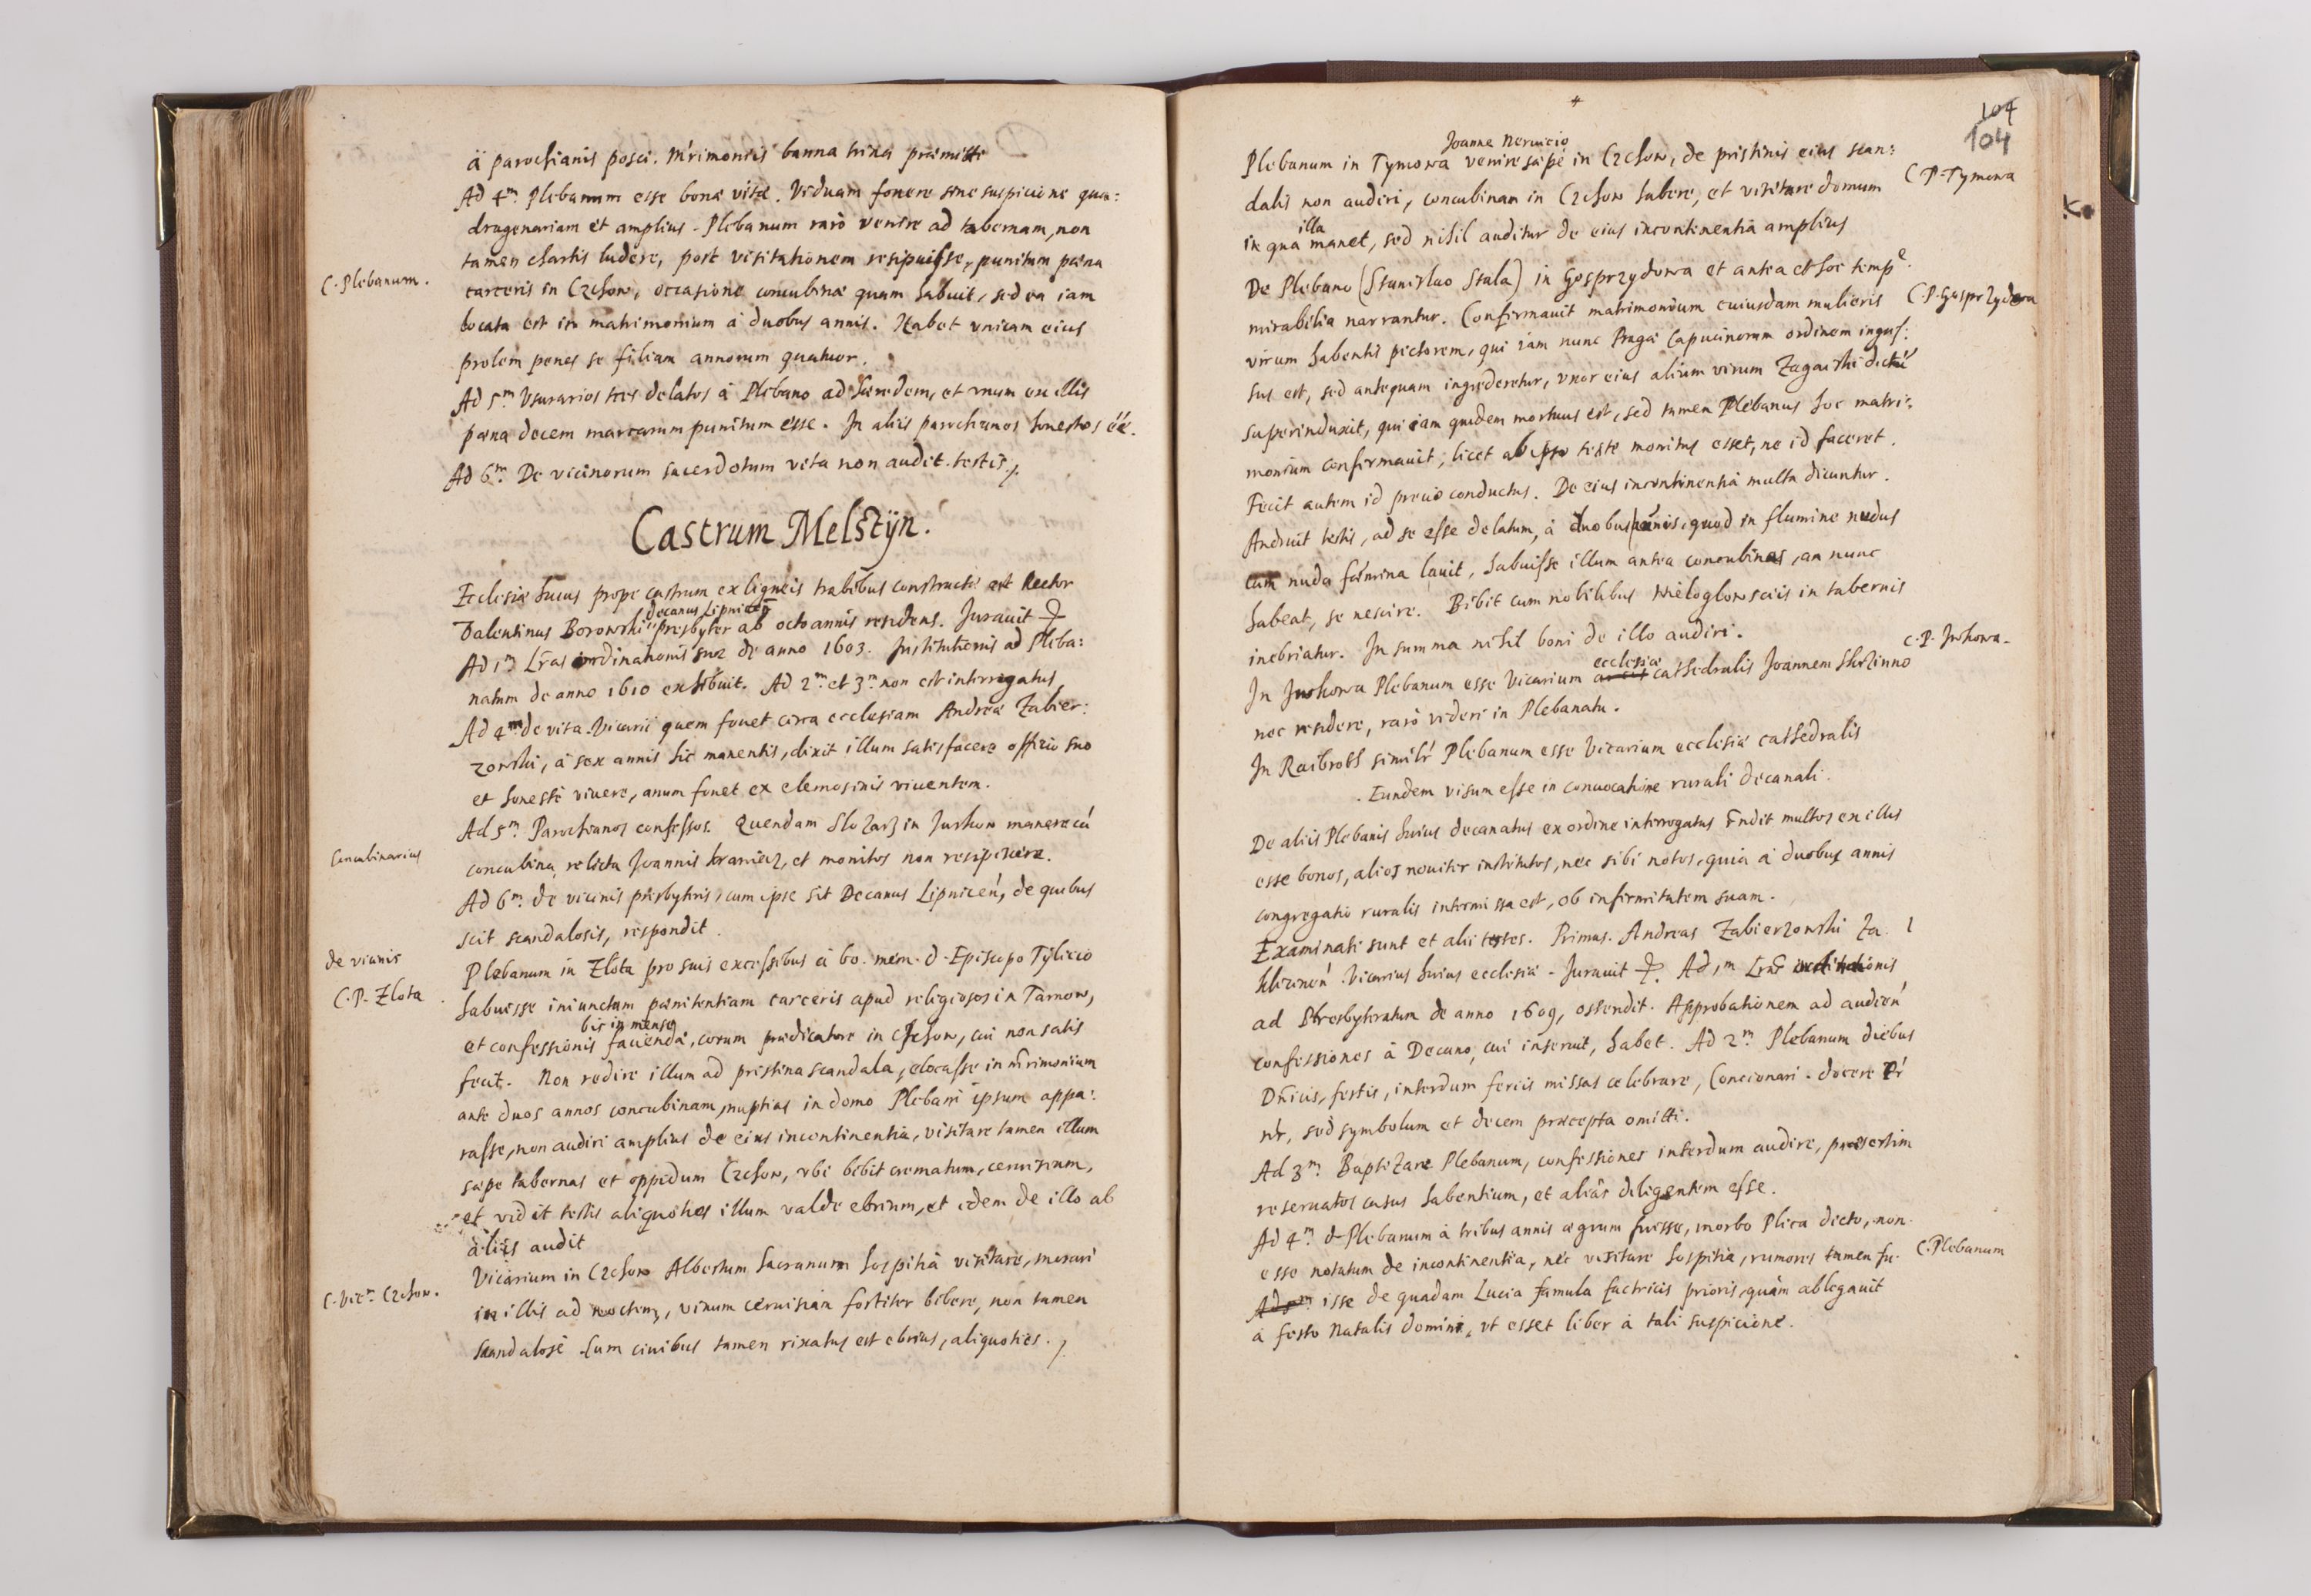 à parochianis posci. Mrimoniis banna trina præmitti
Ad 4m. Plebanum esse bonæ vitæ. Viduam fouere sine suspicione qua:
dragenariam et amplius. Plebanum rarò venire ad tabernam, non
tamen chartis ludere, post visitationem resipuisse, punitum pæna
C. Plebanum.
carceris in Czchow, occasione concubinæ quam habuit, sed ea iam
locata est in matrimonium à duobus annis. Habet vnicam eius
prolem penes se filiam annorum quatuor.
Ad 5m. Vsurarios tres delatos à Plebano ad hæredem, et vnum ex illis
pæna decem marcarum punitum esse. In aliis parochianos honestos éé.
Ad 6m. De vicinorum sacerdotum vita non audit testis.
Castrum Melstÿn.
Ecclesiæ huius prope castrum ex ligneis trabibus constructæ est Rector
decanus Lipnicen
Valentinus Borowski presbyter ab octo annis residens. Jurauit
Ad 1m Lras ordinationis suæ de anno 1603. Institutionis ad Pleba:
natum de anno 1610 exhibuit. Ad 2m. et 3m. non est interrogatus
Ad 4m de vita Vicarii quem fouet circa ecclesiam Andreæ Zabier:
zowski, à sex annis hic manentis, dixit illum satisfacere officio suo
et honestè viuere, anum fouet ex elemosinis viuentem.
Ad 5m. Parochianos confessos. Quendam Slozarz in Jurkow manere cú
Concubinarius
concubina relicta Joannis kramarz, et monitos non resipiscere.
Ad 6m. de vicinis præsbyteris, cum ipse sit Decanus Lipnicen, de quibus
scit scandalosis, respondit.
de vicinis
Plebanum in Zlota pro suis excessibus à bo. mem. d. Episcopo Tylicio
C. P. Zlota.
habuisse iniunctam pænitentiam carceris apud religiosos in Tarnow,
bis in mense
et confessionis faciendæ, coram prædicatore in Czchow, cui non satis
fecit. Non redire illum ad pristina scandala, elocasse in mrimonium
ante duos annos concubinam, nuptias in domo Plebani ipsum appa:
rasse, non audiri amplius de eius incontinentia, visitare tamen illum
sæpe tabernas et oppidum Czchow, vbi bibit crematum, ceruisiam,
et vidit testis aliquoties illum valde ebrium, et idem de illo ab
aliis audit
Vicarium in Czchow Albertum Sacranum hospitia visitare, morari
C. Vicm. Czchow.
in illis ad noctem, vinum ceruisiam fortiter bibere, non tamen
scandalosè. Cum ciuibus tamen rixatus est ebrius, aliquoties.
104
104
Joanne Neruicio
Plebanum in Tymowa venire sæpè in Czchow, de pristinis eius scan:
C. P. Tymowa
dalis non audiri, concubinam in Czchow habere, et visitare domum
illa
in qua manet, sed nihil auditur de eius incontinentia amplius
De Plebano (Stanislao Skala) in Gosprzydowa et antea et hoc tempe.
C. P. Gosprzydowa
mirabilia narrantur. Confirmauit matrimonium cuiusdam mulieris
virum habentis pictorem, qui iam nunc Pragæ Capucinorum ordinem ingres:
sus est, sed antequam ingrederetur, vxor eius alium virum Zagaiski dictú
superinduxit, qui iam quidem mortuus est, sed tamen Plebanus hoc matri:
monium confirmauit, licet ab ipso teste monitus esset, ne id faceret.
Fecit autem id precio conductus. De eius incontinentia multa dicuntur.
Audiuit testis, ad se esse delatum, à duobus annis, quod in flumine nudus
cum nuda fæmina lauit, habuisse illum antea concubinas, an nunc
habeat, se nescire. Bibit cum nobilibus Wieloglowsciis in tabernis
inebriatur. In summa nihil boni de illo audiri.
C. P. Jwkowa.
ecclesiæ
In Jwkowa Plebanum esse Vicarium cathedralis Joannem Skrzinno
nec residere, rarò videri in Plebanatu.
In Raibroth similr Plebanum esse Vicarium ecclesiæ cathedralis
. Eundem visum esse in conuocatione rurali decanali.
De aliis Plebanis huius decanatus ex ordine interrogatus rndit multos ex illis
esse bonos, alios nouiter institutos, nec sibi notos, quia à duobus annis
congregatio ruralis intermissa est, ob infirmitatem suam.
Examinati sunt et alii testes. Primus. Andreas Zabierzowski Za. 1
Vicarius huius ecclesiæ. Jurauit. Ad 1m Lras
ad Presbyteratum de anno 1609, ostendit. Approbationem ad audien
confessiones à Decano, cui inseruit, habet. Ad 2m. Plebanum diebus
Dnicis, festis, interdum feriis missas celebrare, Concionari. docere Pr
nr, sed symbolum et decem præcepta omitti.
Ad 3m. Baptizare Plebanum, confessiones interdum audire, præsertim
reseruatos casus habentium, et aliàs diligentem esse.
Ad 4m. d. Plebanum à tribus annis ægrum fuisse, morbo Plica dicto, non
esse notatum de incontinentia, nec visitare hospitia, rumores tamen fu-
C. Plebanum
Ad 5m isse de quadam Lucia famula factricis prioris, quam ablegauit
à festo Natalis domini, vt esset liber à tali suspicione.